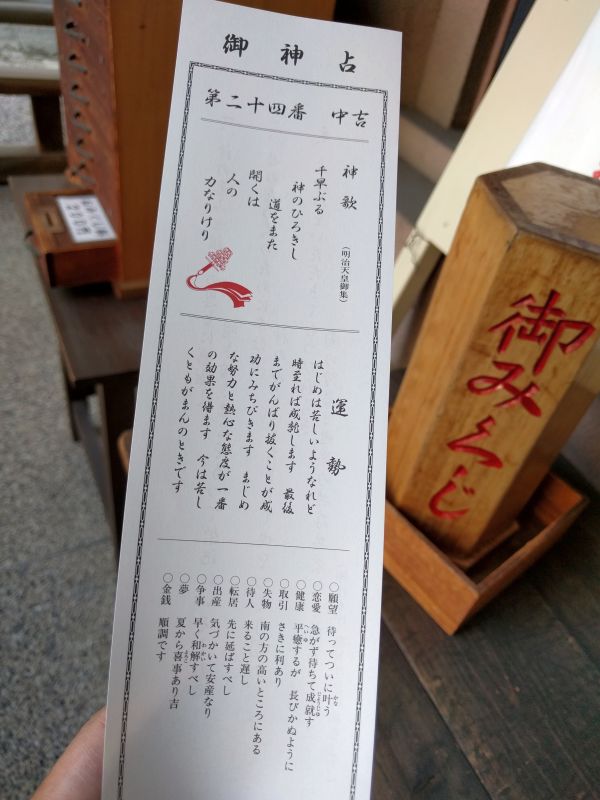 御神占
第二十四番 中吉
神歌
(明治天皇御集)
千早ぶる
神のひろきし
道をまた
開くは
人の
力なりけり
運勢
はじめは苦しいようなれど
時至れば成就します 最後
までがんばり抜くことが成
功にみちびきます まじめ
な努力と熱心な態度が一番
の効果を得ます 今は苦し
くともがまんのときです
○願望 待ってついに叶う
○恋愛 急がず待ちて成就す
○健康 平癒するが 長びかぬように
○取引 さきに利あり
○失物 南の方の高いところにある
○待人 来ること遅し
○転居 先に延ばすべし
○出産 気づかいて安産なり
○争事 早く和解すべし
○夢 夏から喜事あり吉
○金銭 順調です
御みくじ